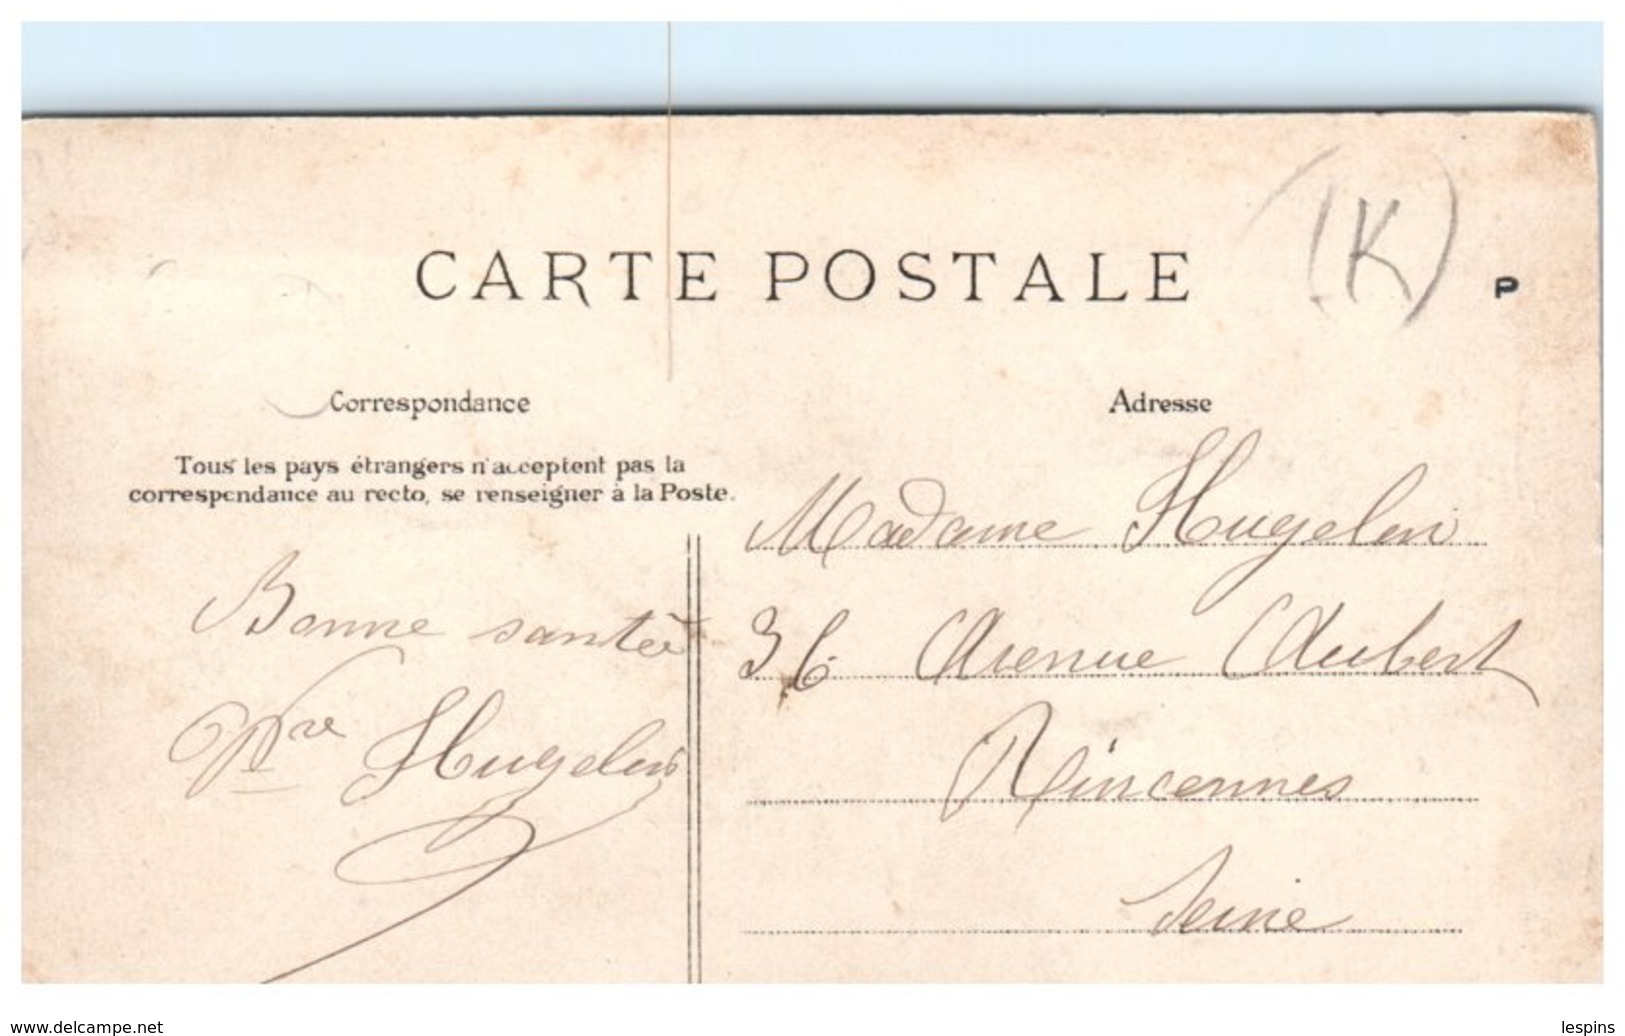 (K)
CARTE POSTALE
P
Correspondance
Tous les pays étrangers n'acceptent pas la
correspondance au recto, se renseigner à la Poste.
Bonne santée
Hugelin
Adresse
Madame Hugelin
36 Avenue Aubert
Vincennes
Seine
www.delcampe.net
lespins